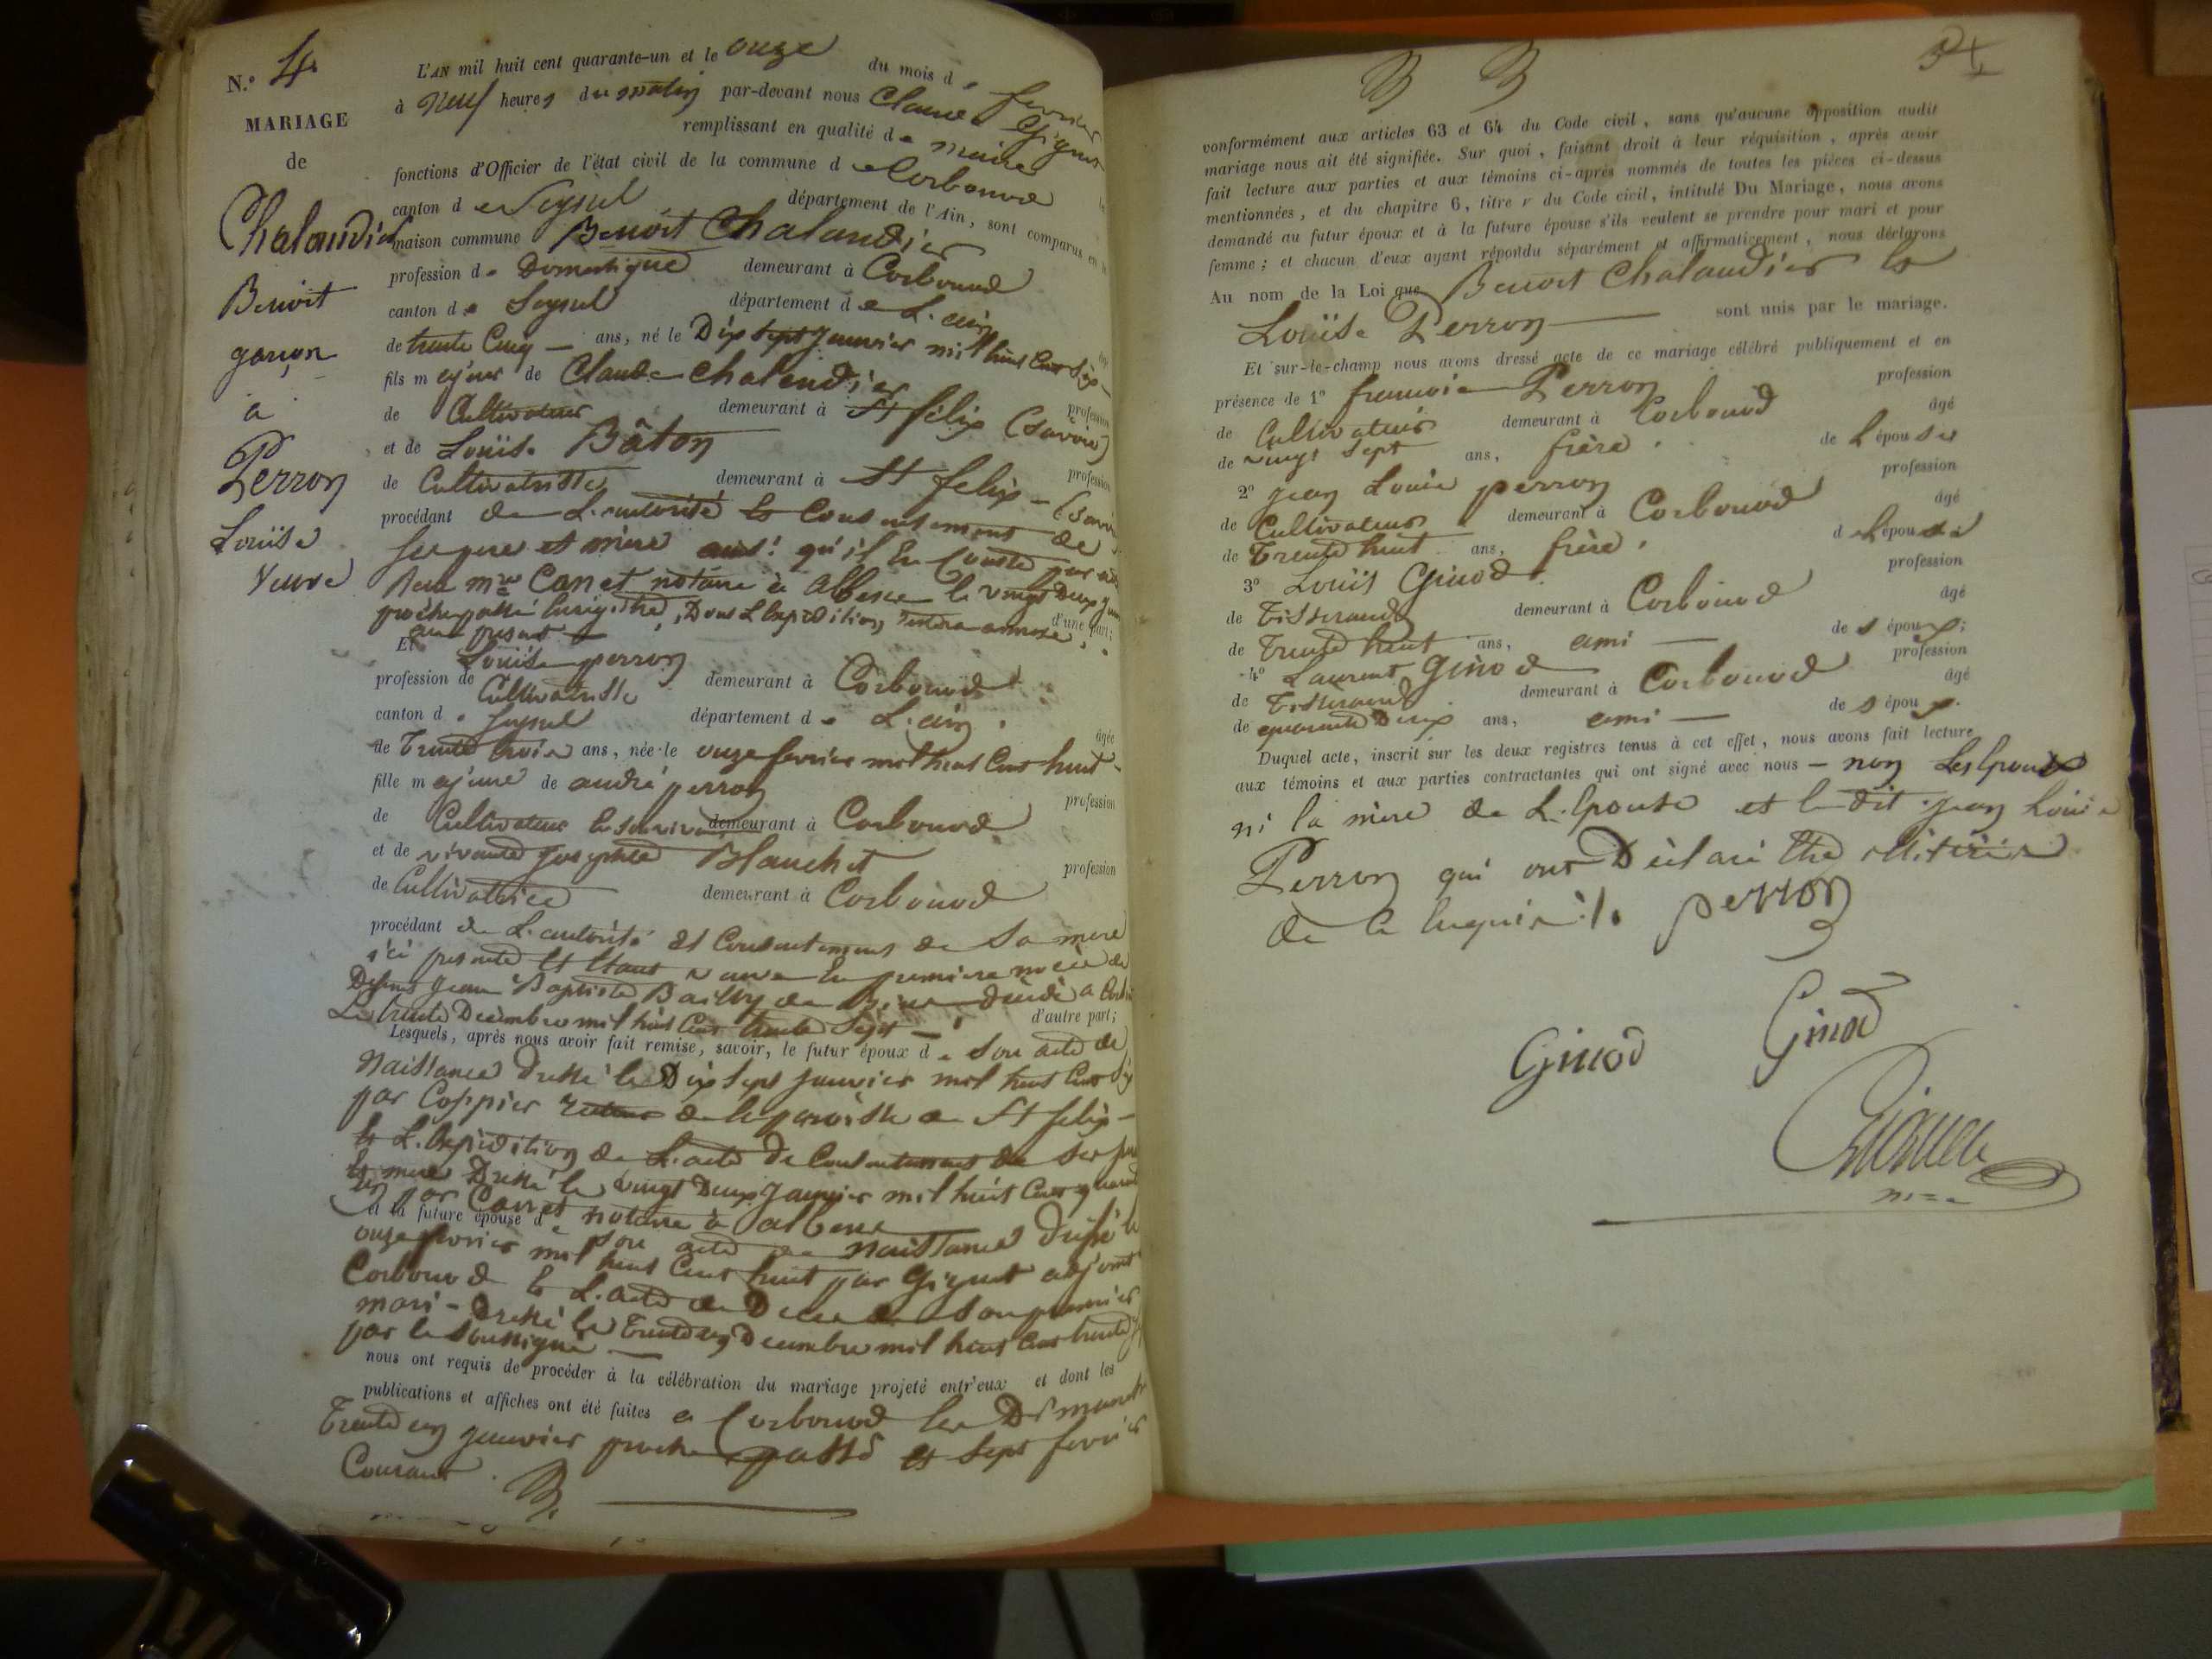 N.° 4
MARIAGE
de
Chalandier
Benoit
garçon
a
Perron
Louïse
Veuve
L'AN mil huit cent quarante-un et le onze du mois de fevrier
à Neuf heures du matin par-devant nous Claude Gignet
remplissant en qualité de maire
fonctions d'Officier de l'état civil de la commune de Corbonod
canton de Seyssel département de l'Ain, sont comparus en la
maison commune Benoit Chalandier
profession de Domestique demeurant à Corbonod
canton de Seyssel département de L'ain
de trente Cinq ans, né le Dix Sept Janvier mil huit Cent Six
fils majeur de Claude Chalandier
de Cultivateur demeurant à St felix (Savoie) profession
et de Louïse Bâton
de Cultivatrisse demeurant à St felix (Savoie) profession
procédant de L'autorité et Consentement de
Ses pere et mère ainsi qu'il En Conste par acte
Reçu me Canet notaire à Albens le vingt Deux Janvier
proche passé Enrégistré, Dont L'Expedition restera annexé d'une part;
au present
Et Louïse perron
profession de Cultivatrisse demeurant à Corbonod
canton de Seyssel département de L'ain. âgée
de Trente trois ans, née le onze fevrier mil huit Cent huit
fille majeure de andré perron
de Cultivateur demeurant à Corbonod profession
et de vivante Josephte Blanchet
de Cultivatrice demeurant à Corbonod profession
procédant de L'autorité et Consentement de Sa mere
ici presente et Etant veuve En premiere noce de
Defunt Jean Baptiste Bailly décédé a
Le trente Decembre mil huit Cent trente Sept d'autre part;
Lesquels, après nous avoir fait remise, savoir, le futur époux de Son acte de
Naissance Dressé le Dix Sept Janvier mil huit Cent Six
par Coppier recteur de la paroisse de St felix
et L'Expedition de L'acte De Consentement de Ses pere
et mere Dressé le vingt Deux Janvier mil huit Cent quarante
un par Canet notaire à albens
et la future épouse de Son acte de Naissance Dressé le
onze fevrier mil huit Cent huit par Gignet adjoint
Corbonod et L'acte de Deces de Son premier
mari Dressé le Trente un Decembre mil huit Cent trente
par le Soussigné
nous ont requis de procéder à la célébration du mariage projeté entr'eux et dont les
publications et affiches ont été faites a Corbonod les Dimanche
Trente un Janvier proche passé et Sept fevrier
Courant.
conformément aux articles 63 et 64 du Code civil, sans qu'aucune opposition audit
mariage nous ait été signifiée. Sur quoi, faisant droit à leur réquisition, après avoir
fait lecture aux parties et aux témoins ci-après nommés de toutes les pièces ci-dessus
mentionnées, et du chapitre 6, titre v du Code civil, intitulé Du Mariage, nous avons
demandé au futur époux et à la future épouse s'ils veulent se prendre pour mari et pour
femme; et chacun d'eux ayant répondu séparément et affirmativement, nous déclarons
Au nom de la Loi que Benoit Chalandier et
Louïse Perron sont unis par le mariage.
Et sur-le-champ nous avons dressé acte de ce mariage célébré publiquement et en
présence de 1° francois Perron profession
de Cultivateur demeurant à Corbonod âgé
de vingt Sept ans, frère de L'épouse
2° Jean Louis perron profession
de Cultivateur demeurant à Corbonod âgé
de Trente huit ans, frère de L'épouse
3° Louïs Ginod profession
de Tisserand demeurant à Corbonod âgé
de Trente huit ans, ami des époux;
4° Laurent Ginod profession
de Tisserand demeurant à Corbonod âgé
de quarante Deux ans, ami des époux.
Duquel acte, inscrit sur les deux registres tenus à cet effet, nous avons fait lecture
aux témoins et aux parties contractantes qui ont signé avec nous – non Les Epoux
ni la mère de L'Epouse et le dit Jean Louis
Perron qui ont Déclaré Etre illitérés
de ce Enquis ./. perron
Ginod
Ginod
Gignet